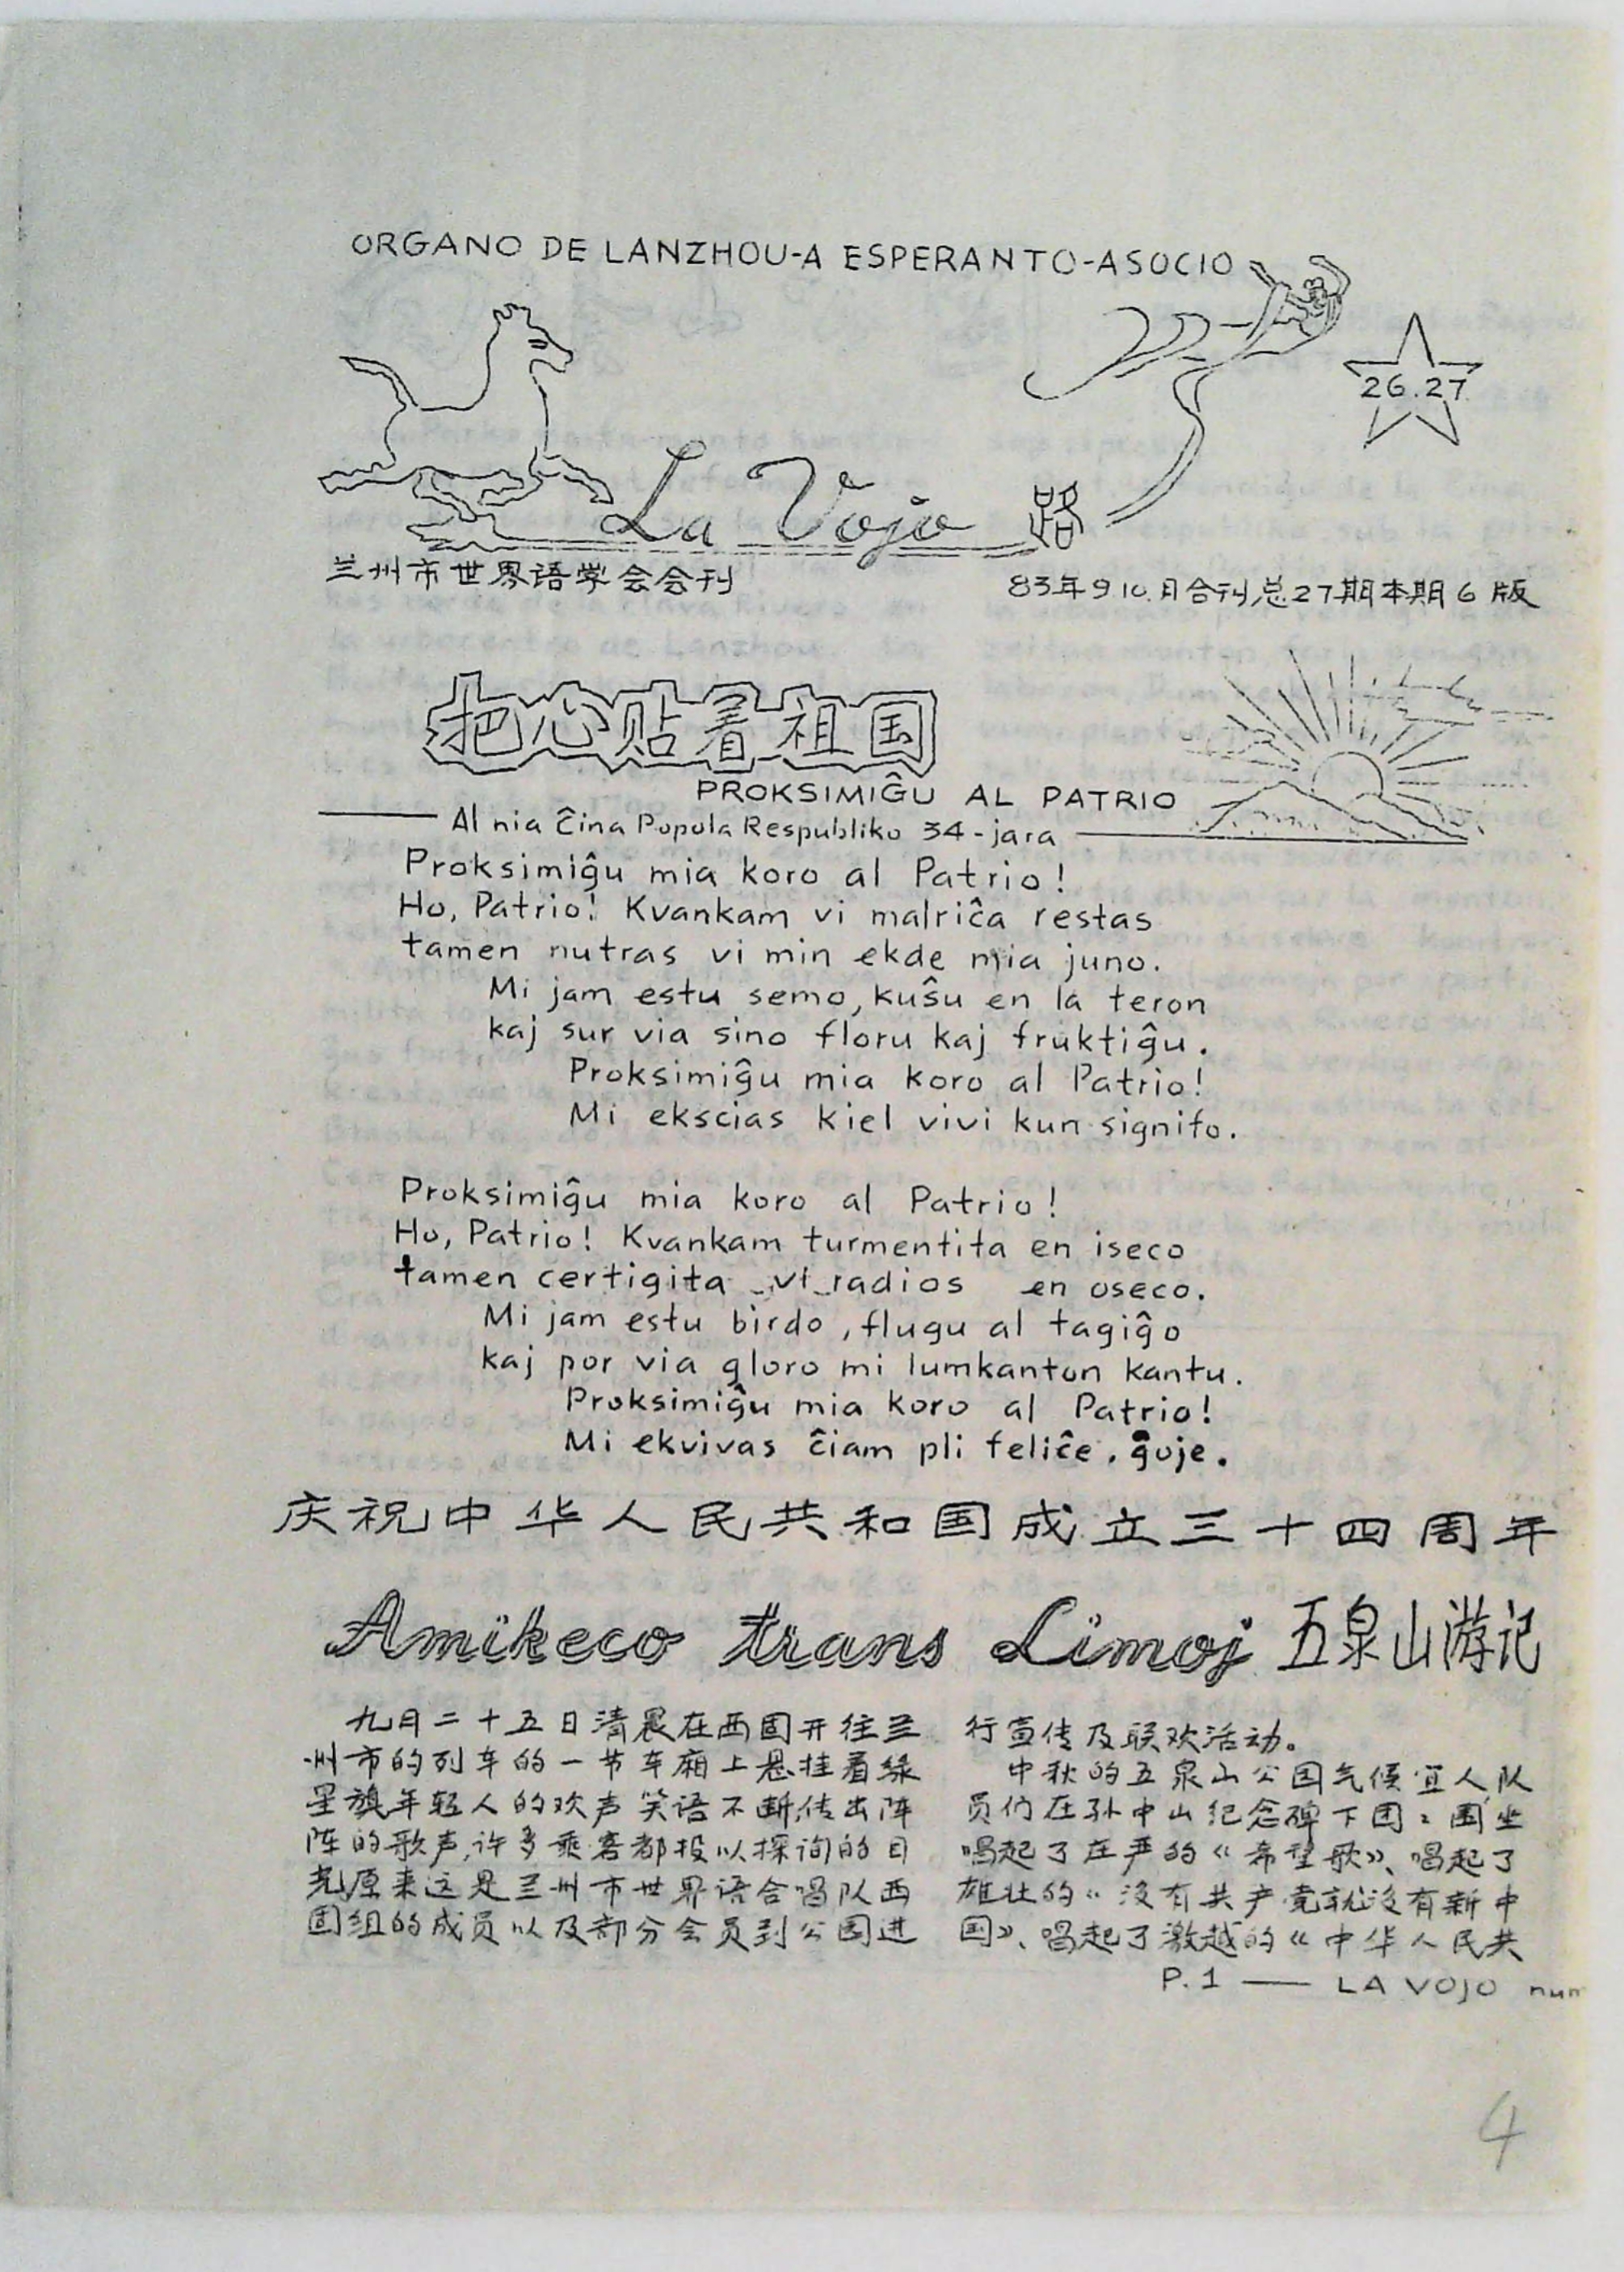 ORGANO DE LANZHOU-A ESPERANTO-ASOCIO
26.27
La Vojo 路
兰州市世界语学会会刊
83年9 10.月合刊总27期本期6版
把心贴着祖国
PROKSIMIĜU AL PATRIO
Al nia Ĉina Popola Respubliko 34-jara
Proksimiĝu mia koro al Patrio!
Ho, Patrio! Kvankam vi malriĉa restas
tamen nutras vi min ekde mia juno.
Mi jam estu semo, kuŝu en la teron
kaj sur via sino floru kaj fruktiĝu.
Proksimiĝu mia koro al Patrio!
Mi ekscias kiel vivi kun signifo.
Proksimiĝu mia koro al Patrio!
Ho, Patrio! Kvankam turmentita en iseco
tamen certigita vi radios en oseco.
Mi jam estu birdo, flugu al tagiĝo
kaj por via gloro mi lumkanton kantu.
Proksimiĝu mia koro al Patrio!
Mi ekvivas ĉiam pli feliĉe, ĝoje.
庆祝中华人民共和国成立三十四周年
Amikeco trans Limoj 五泉山游记
九月二十五日清晨在西固开往兰
州市的列车的一节车厢上悬挂着绿
星旗年轻人的欢声笑语不断,传出阵
阵的歌声,许多乘客都投以探询的目
光原来这是兰州市世界语合唱队西
固组的成员以及部分会员到公园进
行宣传及联欢活动。
中秋的五泉山公园气候宜人,队
员们在孙中山纪念碑下团々围坐
唱起了庄严的《希望歌》、唱起了
雄壮的《没有共产党就没有新中
国》、唱起了激越的《中华人民共
P.1 —— LA VOJO num
4